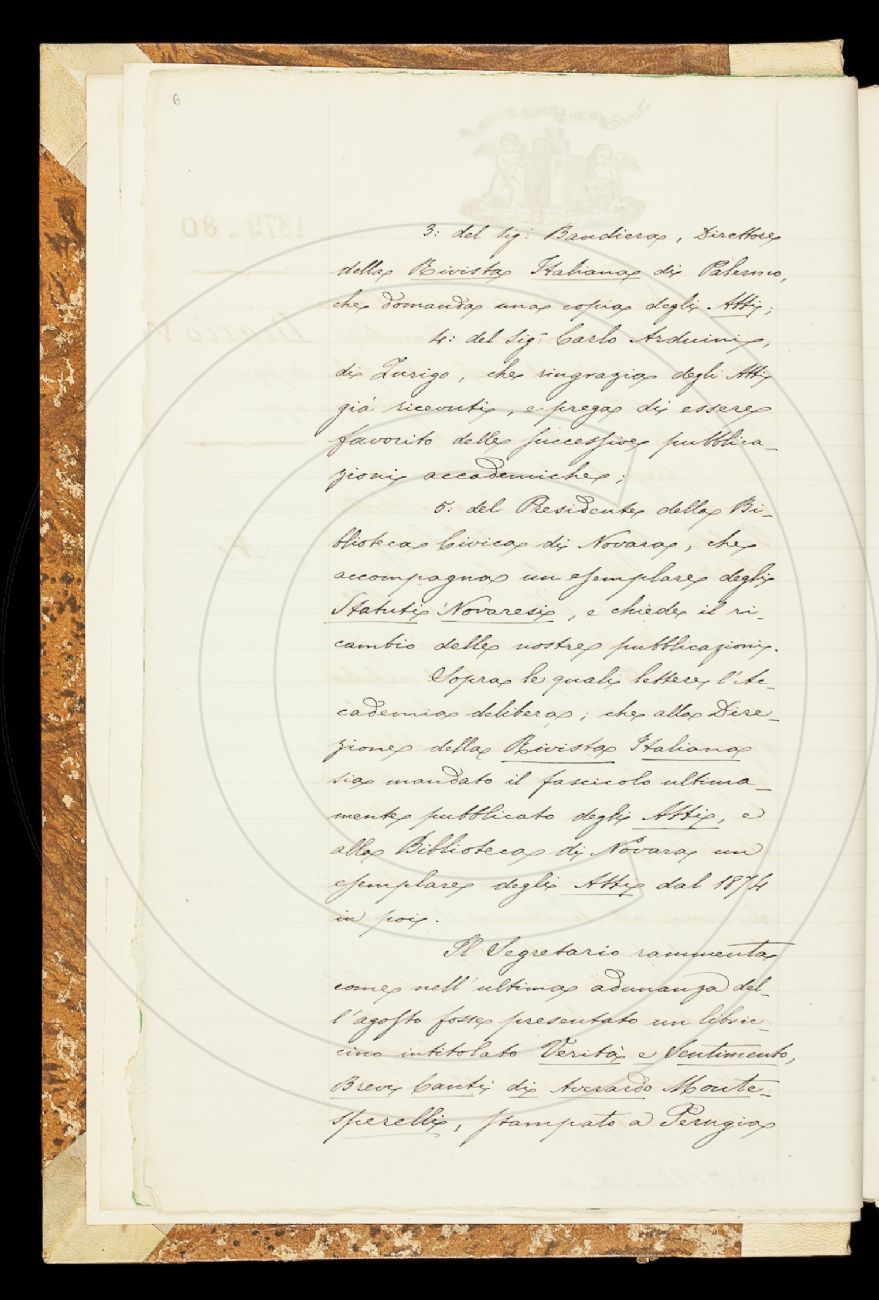 6
3: del sig: Bandiera, Direttore
della Rivista Italiana di Palermo,
che domanda una copia degli Atti;
4: del Sig: Carlo Arduini,
di Zurigo, che ringrazia degli Atti
già ricevuti, e prega di essere
favorito delle successive pubblica-
zioni accademiche;
5: del Presidente della Bi-
blioteca Civica di Novara, che
accompagna un esemplare degli
Statuti Novaresi, e chiede il ri-
cambio delle nostre pubblicazioni.
Sopra le quali lettere l'Ac-
cademia delibera; che alla Dire-
zione della Rivista Italiana
sia mandato il fascicolo ultima-
mente pubblicato degli Atti, e
alla Biblioteca di Novara un
esemplare degli Atti dal 1874
in poi.
Il Segretario rammenta
come nell'ultima adunanza del-
l'agosto fosse presentato un libric-
cino intitolato Verità e Sentimento,
Brevi Canti di Averardo Monte-
sperelli, stampato a Perugia